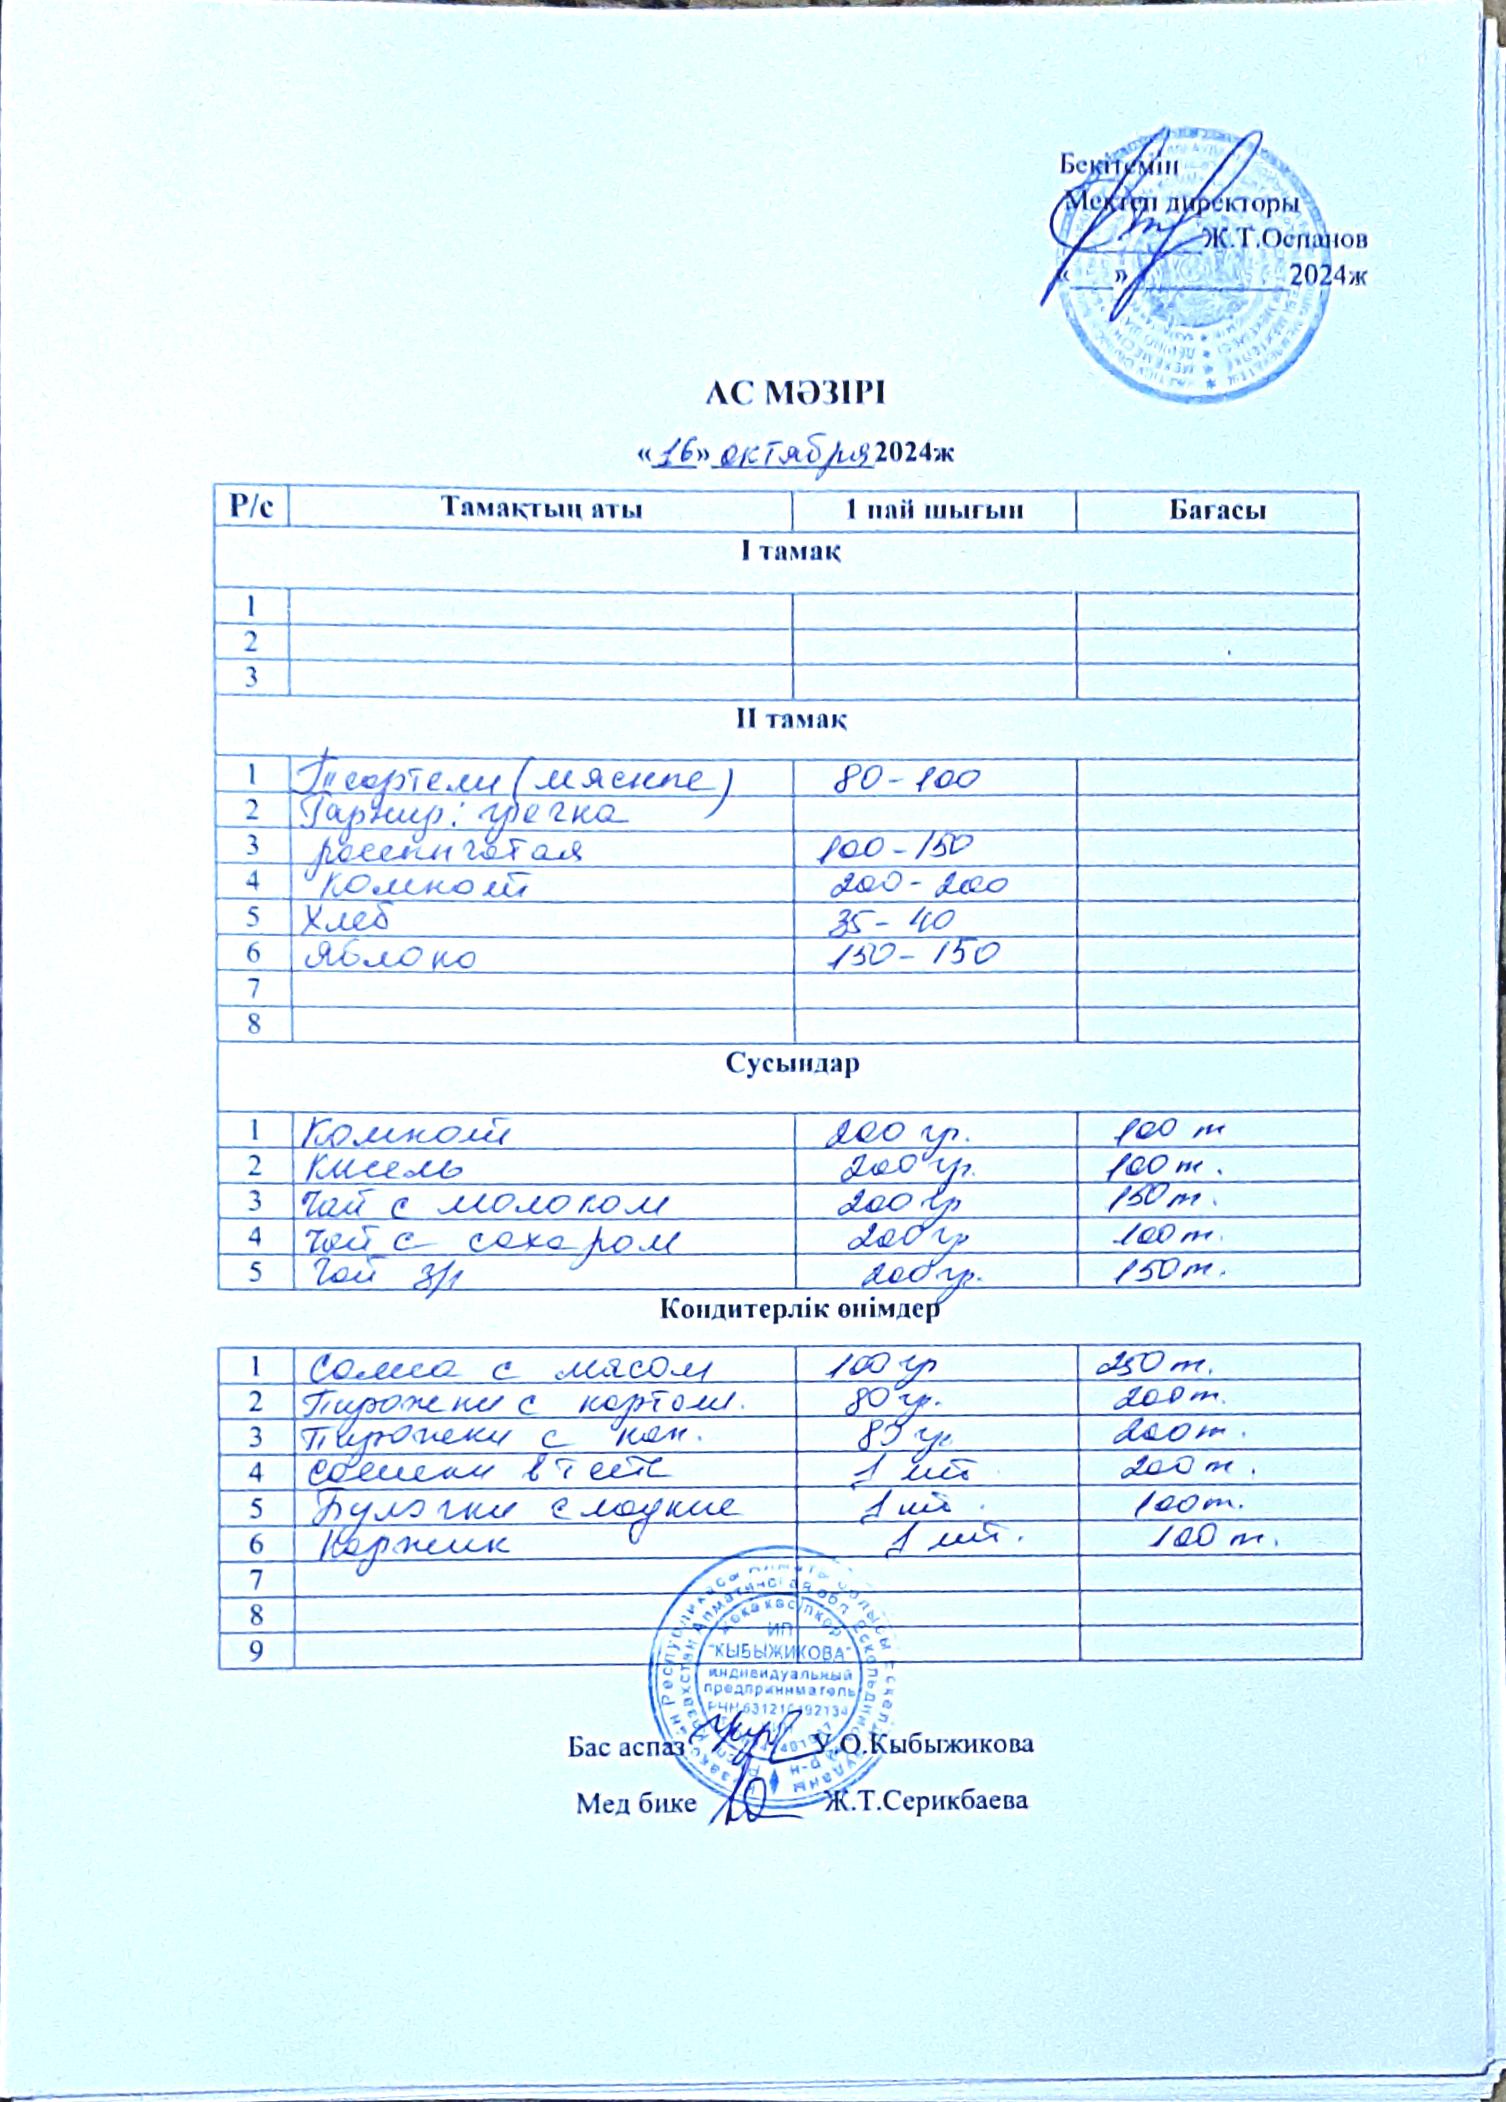 Бекітемін
Мектеп директоры
Ж.Т.Оспанов
«___»___________2024ж
АС МӘЗІРІ
«16» октября 2024ж
Р/с Тамақтың аты 1 пай шығын Бағасы
І тамақ
1
2
3
ІІ тамақ
1 (мясные) 80-100
2 Гарнир: гречка
3 рассыпчатая 100-150
4 Компот 200-200
5 Хлеб 35-40
6 Яблоко 150-150
7
8
Сусындар
1 Компот 200 гр. 100 т
2 Кисель 200 гр. 100 т.
3 Чай с молоком 200 гр 150 т.
4 Чай с сахаром 200 гр 100 т.
5 Чай 200 гр. 150 т.
Кондитерлік өнімдер
1 Самса с мясом 100 гр 250 т.
2 Пирожки с картош. 80 гр. 200 т.
3 Пирожки с кап. 80 гр. 200 т.
4 Сосиски в тесте 1 шт 200 т.
5 Булочки сладкие 1 шт. 100 т.
6 Коржик 1 шт. 100 т.
7
8
9
ИП
"КЫБЫЖИКОВА"
индивидуальный
предприниматель
Бас аспаз У.О.Кыбыжикова
Мед бике Ж.Т.Серикбаева